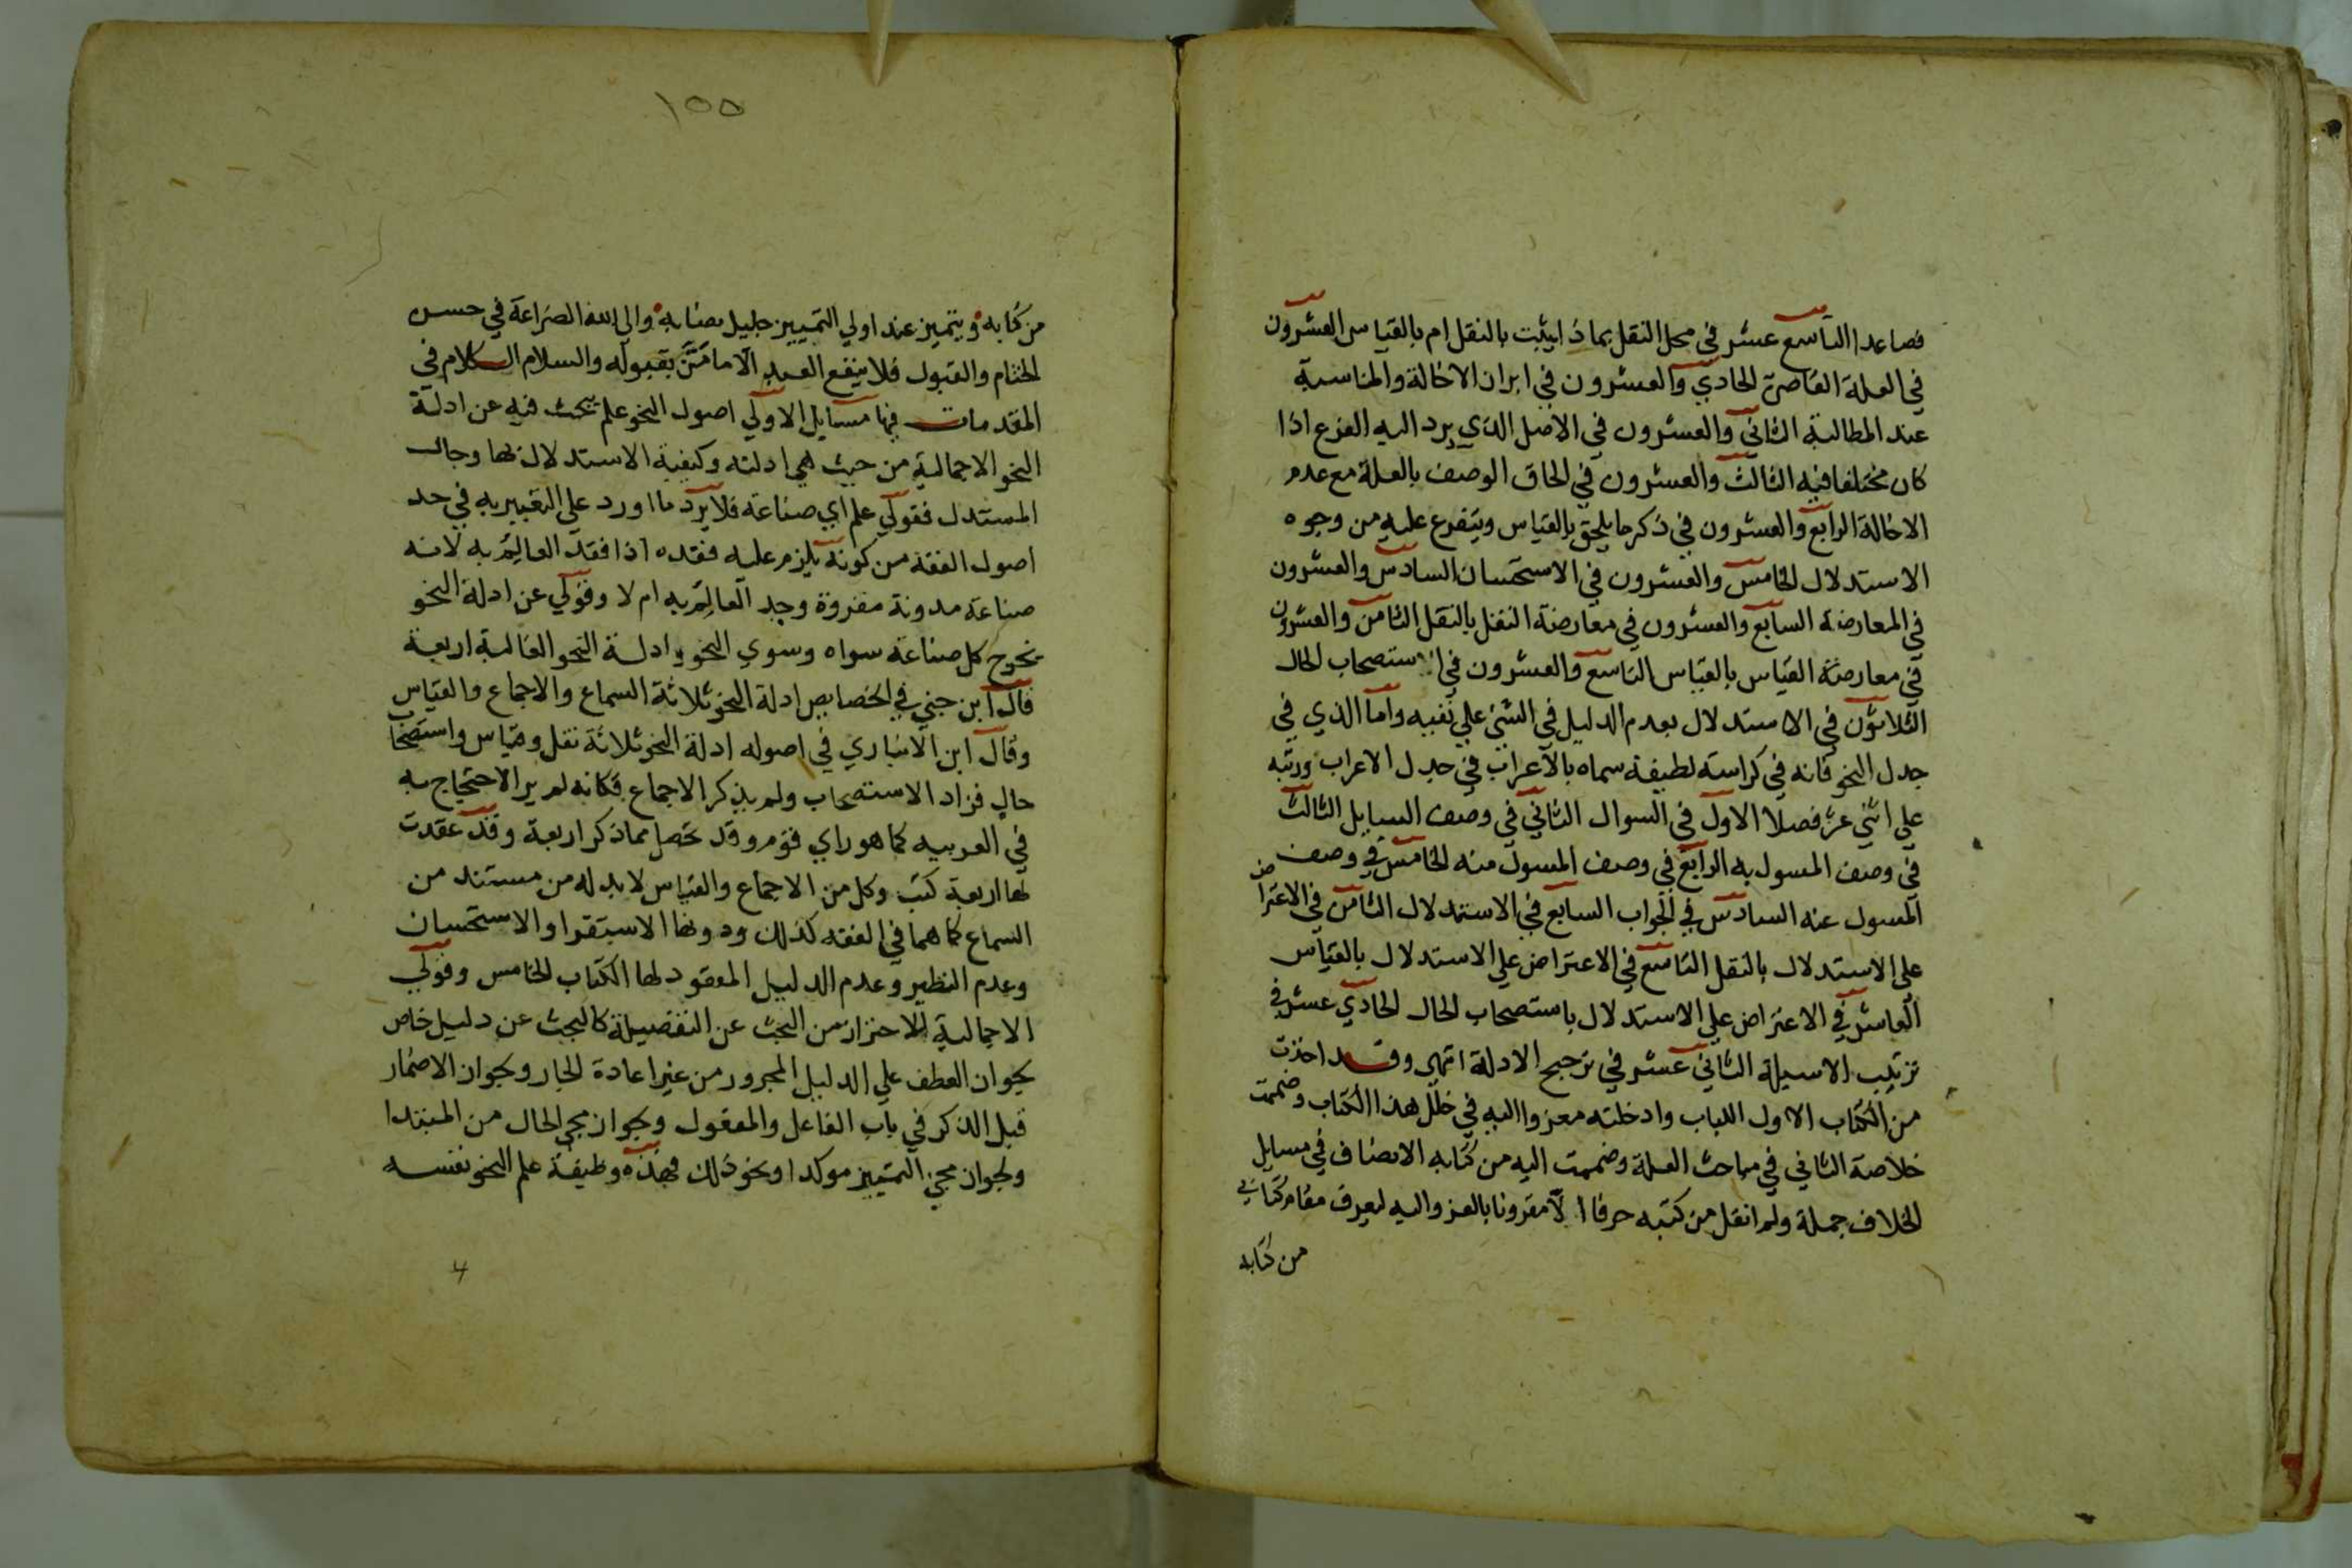 فصاعدا التاسع عشر في محل النقل بماذا يثبت بالنقل ام بالقياس العشرون
في العلة القاصرة الحادي والعشرون في ابراز الاخالة والمناسبة
عند المطالبة الثاني والعشرون في الاصل الذي يرد اليه الفرع اذا
كان مختلفا فيه الثالث والعشرون في الحاق الوصف بالعلة مع عدم
الاخالة الرابع والعشرون في ذكر ما يلحق بالقياس ويتفرع عليه من وجوه
الاستدلال الخامس والعشرون في الاستحسان السادس والعشرون
في المعارضة السابع والعشرون في معارضة النقل بالنقل الثامن والعشرون
في معارضة القياس بالقياس التاسع والعشرون في استصحاب الحال
الثلاثون في الاستدلال بعدم الدليل في الشئ علي نفيه واما الذي في
جدل النحو فانه في كراسة لطيفة سماه بالاعراب في جدل الاعراب ورتبه
علي اثني عشر فصلا الاول في السوال الثاني في وصف السايل الثالث
في وصف المسول به الرابع في وصف المسول منه الخامس في وصف
المسول عنه السادس في الجواب السابع في الاستدلال الثامن في الاعتراض
علي الاستدلال بالنقل التاسع في الاعتراض علي الاستدلال بالقياس
العاشر في الاعتراض علي الاستدلال باستصحاب الحال الحادي عشر في
ترتيب الاسيلة الثاني عشر في ترجيح الادلة انتهي وقد اخذت
من الكتاب الاول اللباب وادخلته معزوا اليه في خلل هذا الكتاب وضممت
خلاصة الثاني في مباحث العلة وضممت اليه من كتابه الانصاف في مسايل
الخلاف جملة ولم انقل من كتبه حرفا الا مقرونا بالعزو اليه ليعرف مقام كتابي
من كتابه
١٥٥
من كتابه ويتميز عند اولي التمييز جليل نصابه والي الله الضراعة في حسن
الختام والقبول فلا ينفع العبد الا ما من بقبوله والسلام الكلام في
المقدمات فيها مسايل الاولي اصول النحو علم يبحث فيه عن ادلة
النحو الاجمالية من حيث هي ادلته وكيفية الاستدلال بها وحال
المستدل فقولي علم اي صناعة فلا يرد ما اورد علي التعبير به في حد
اصول الفقه من كونه يلزم عليه فقده اذا فقد العالم به لانه
صناعة مدونة مقررة وجد العالم به ام لا وقولي عن ادلة النحو
يخرج كل صناعة سواه وسوي النحو وادلة النحو الغالبة اربعة
قال ابن جني في الخصايص ادلة النحو ثلاثة السماع والاجماع والقياس
وقال ابن الانباري في اصوله ادلة النحو ثلاثة نقل وقياس واستصحاب
حال فزاد الاستصحاب ولم يذكر الاجماع فكانه لم ير الاحتجاج به
في العربيه كما هو راي قوم وقد تحصل مما ذكر اربعة وقد عقدت
لها اربعة كتب وكل من الاجماع والقياس لا بد له من مستند من
السماع كما هما في الفقه كذلك ودونها الاستقرا والاستحسان
وعدم النظير وعدم الدليل المعقود لها الكتاب الخامس وقولي
الاجمالية للاحتراز من البحث عن التفصيلة كالبحث عن دليل خاص
بجواز العطف علي الدليل المجرور من غير اعادة الجار وبجواز الاضمار
قبل الذكر في باب الفاعل والمفعول وبجواز مجي الحال من المبتدا
وبجواز مجئ التمييز موكدا ونحو ذلك فهذه وظيفة علم النحو نفسه
٤